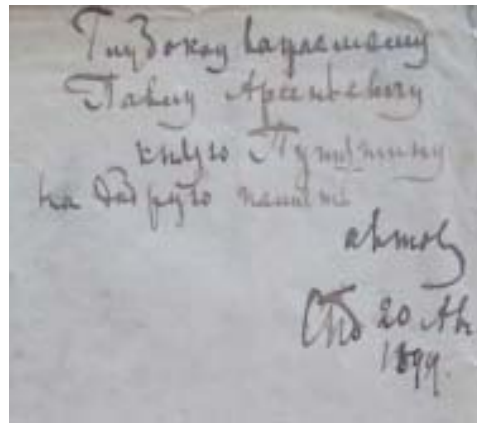 Глубокоуважаемому
Павлу Арсеньевичу
князю Путятину
на добрую память
авторъ
СПб 20 Ав
1899.